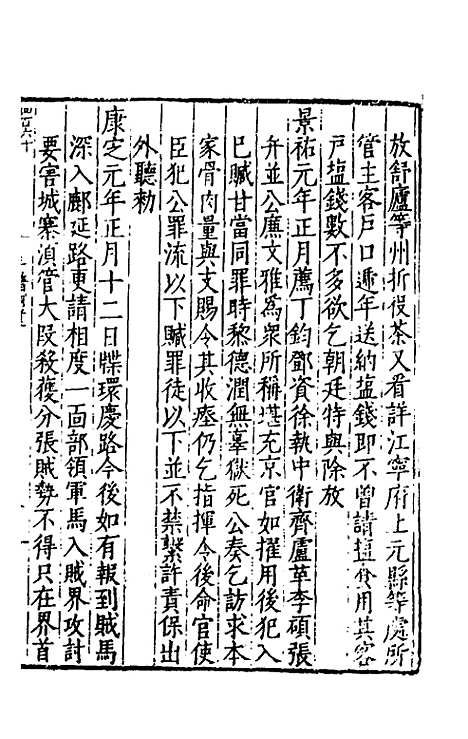 放舒廬等州折役茶又看詳江寧府上元縣等處所
管主客戶口遞年送納塩錢即不曾請塩食用其客
戶塩錢數不多欲乞朝廷特與除放
景祐元年正月薦丁鈞鄧資徐執中衛齊盧革李碩張
弁並公廉文雅為衆所稱堪充京官如擢用後犯入
已贓甘當同罪時黎德潤無辜獄死公奏乞訪求本
家骨肉量與支賜令其收瘞仍乞指揮今後命官使
臣犯公罪流以下贓罪徒以下並不禁繫許責保出
外聽勑
康定元年正月十二日牒環慶路今後如有報到賊馬
深入鄜延路更請相度一面部領軍馬入賊界攻討
要害城寨滇管大段殺獲分張賊勢不得只在界首